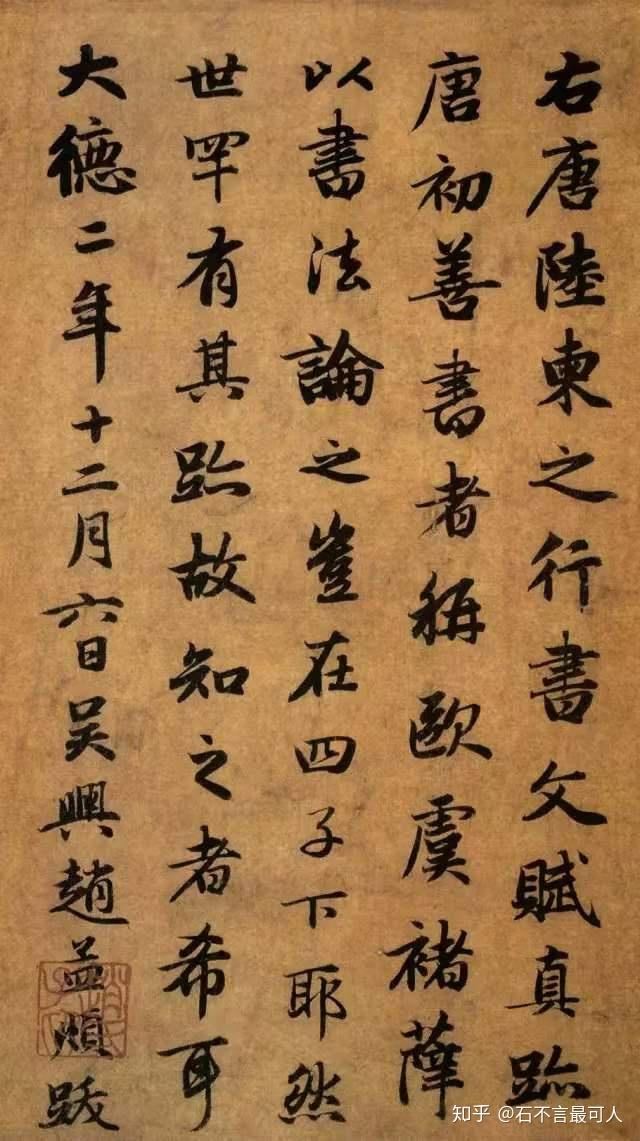 右唐陸柬之行書文賦真跡
唐初善書者稱歐虞褚薛
以書法論之豈在四子下耶然
世罕有其跡故知之者希耳
大德二年十二月六日吴興趙孟頫跋
知乎 @石不言最可人